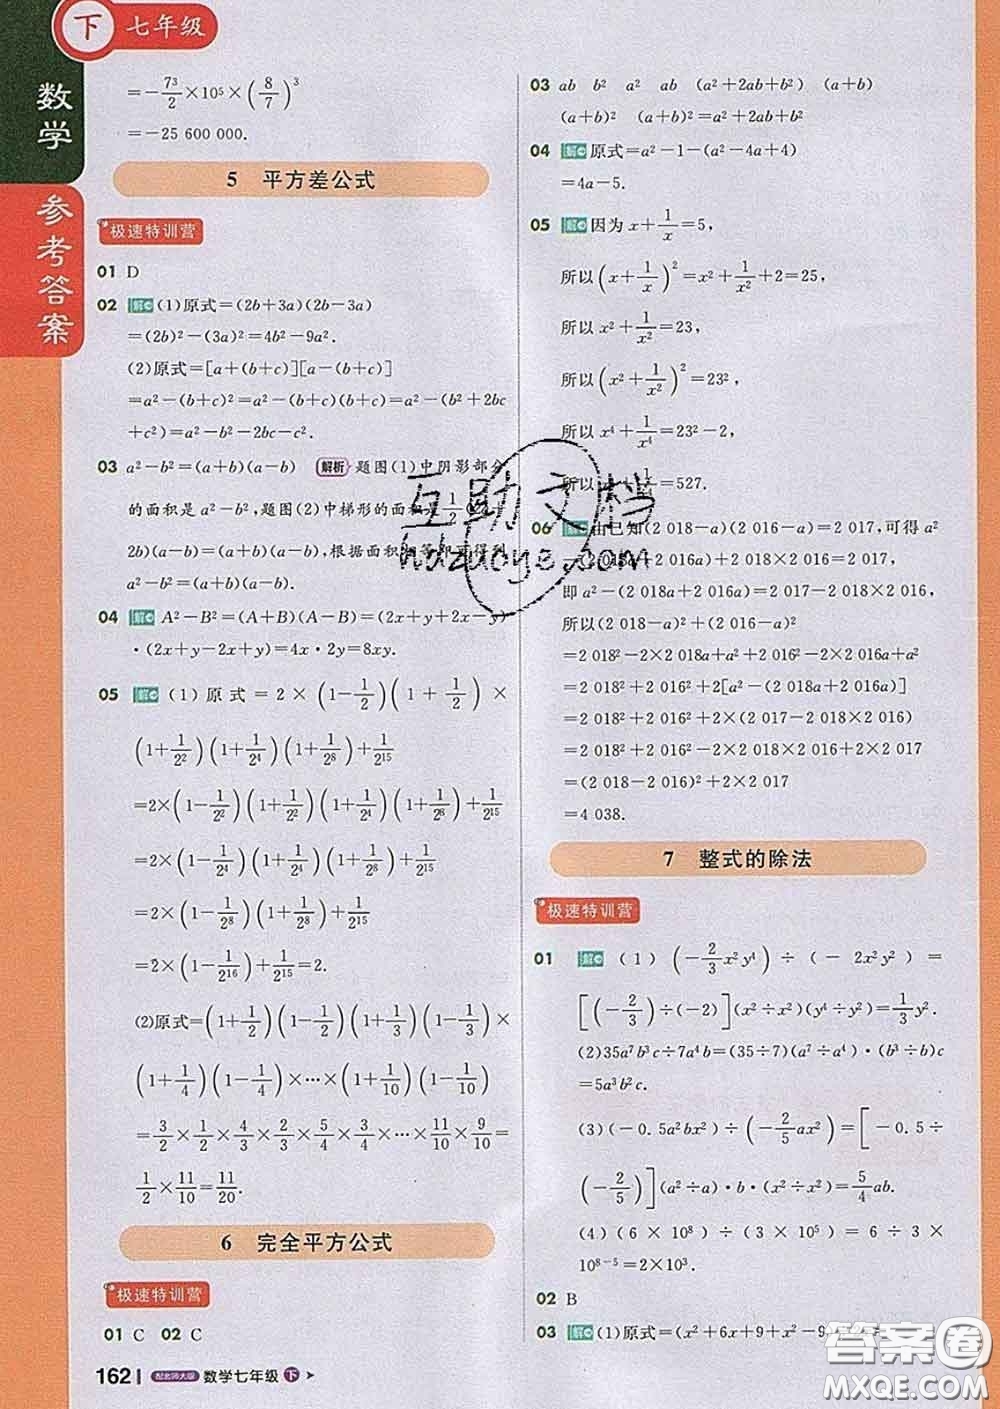 下 七年级
数学
参考答案
=-7³/2×10⁵×(8/7)³
=-25 600 000.
5 平方差公式
极速特训营
01 D
02 解 (1)原式=(2b+3a)(2b-3a)
=(2b)²-(3a)²=4b²-9a².
(2)原式=[a+(b+c)][a-(b+c)]
=a²-(b+c)²=a²-(b+c)(b+c)=a²-(b²+2bc
+c²)=a²-b²-2bc-c².
03 a²-b²=(a+b)(a-b) 解析 题图(1)中阴影部分
的面积是a²-b²,题图(2)中梯形的面积是1/2
2b)(a-b)=(a+b)(a-b),根据面积相等即可得到
a²-b²=(a+b)(a-b).
04 解 A²-B²=(A+B)(A-B)=(2x+y+2x-y)
·(2x+y-2x+y)=4x·2y=8xy.
05 解 (1)原式=2×(1-1/2)(1+1/2)×
(1+1/2²)(1+1/2⁴)(1+1/2⁸)+1/2¹⁵
=2×(1-1/2²)(1+1/2²)(1+1/2⁴)(1+1/2⁸)+1/2¹⁵
=2×(1-1/2⁴)(1+1/2⁴)(1+1/2⁸)+1/2¹⁵
=2×(1-1/2⁸)(1+1/2⁸)+1/2¹⁵
=2×(1-1/2¹⁶)+1/2¹⁵=2.
(2)原式=(1+1/2)(1-1/2)(1+1/3)(1-1/3)×
(1+1/4)(1-1/4)×…×(1+1/10)(1-1/10)
=3/2×1/2×4/3×2/3×5/4×3/4×…×11/10×9/10=
1/2×11/10=11/20.
6 完全平方公式
极速特训营
01 C 02 C
162 配北师大版 数学七年级 下
03 ab b² a² ab (a²+2ab+b²) (a+b)
(a+b)² (a+b)²=a²+2ab+b²
04 解 原式=a²-1-(a²-4a+4)
=4a-5.
05 解 因为x+1/x=5,
所以(x+1/x)²=x²+1/x²+2=25,
所以x²+1/x²=23,
所以(x²+1/x²)²=23²,
所以x⁴+1/x⁴=23²-2,
所以x⁴+1/x⁴=527.
06 解 由已知(2 018-a)(2 016-a)=2 017,可得a²
-(2 018a+2 016a)+2 018×2 016=2 017,
即a²-(2 018a+2 016a)=2 017-2 018×2 016,
所以(2 018-a)²+(2 016-a)²
=2 018²-2×2 018a+a²+2 016²-2×2 016a+a²
=2 018²+2 016²+2[a²-(2 018a+2 016a)]
=2 018²+2 016²+2×(2 017-2 018×2 016)
=2 018²+2 016²-2×2 018×2 016+2×2 017
=(2 018-2 016)²+2×2 017
=4 038.
7 整式的除法
极速特训营
01 解 (1)(-2/3x²y⁴)÷(-2x²y²)=
[(-2/3)÷(-2)](x²÷x²)(y⁴÷y²)=1/3y².
(2)35a⁷b³c÷7a⁴b=(35÷7)(a⁷÷a⁴)·(b³÷b)c
=5a³b²c.
(3)(-0.5a²bx²)÷(-2/5ax²)=[-0.5÷
(-2/5)](a²÷a)·b·(x²÷x²)=5/4ab.
(4)(6×10⁸)÷(3×10⁵)=6÷3×
10⁸⁻⁵=2×10³.
02 B
03 解 (1)原式=(x²+6x+9+x²-9
互助文档
hdzuoye.com
答案圈
MXQE.COM